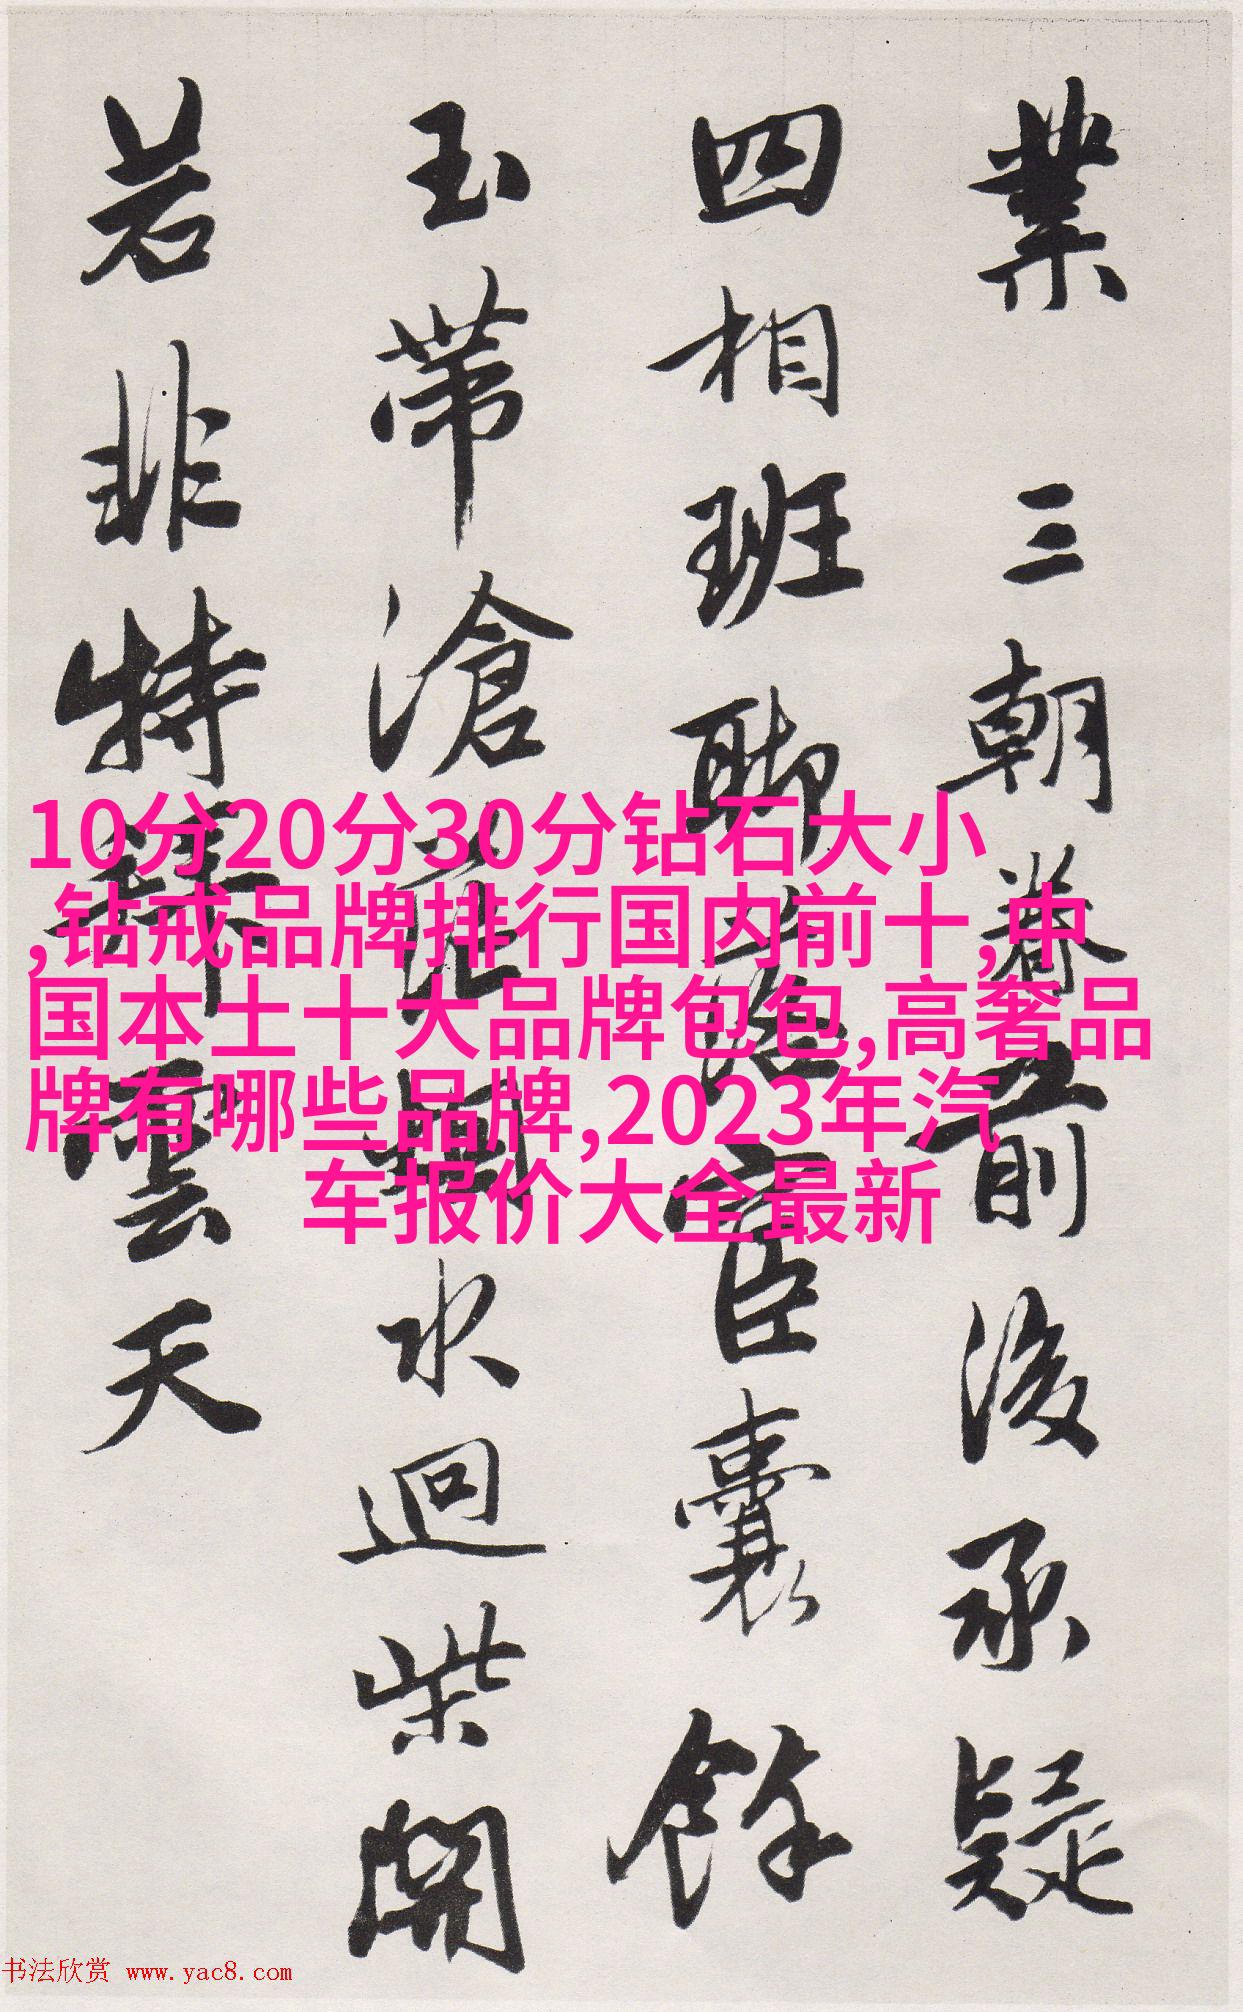 業三朝眷前後承疑
四相班聊落宦囊餘
玉帶滄茫烟水迴柴開
若非特拜雲天
10分20分30分钻石大小
,钻戒品牌排行国内前十,中
国本土十大品牌包包,高奢品
牌有哪些品牌,2023年汽
车报价大全最新
书法欣赏 www.yac8.com